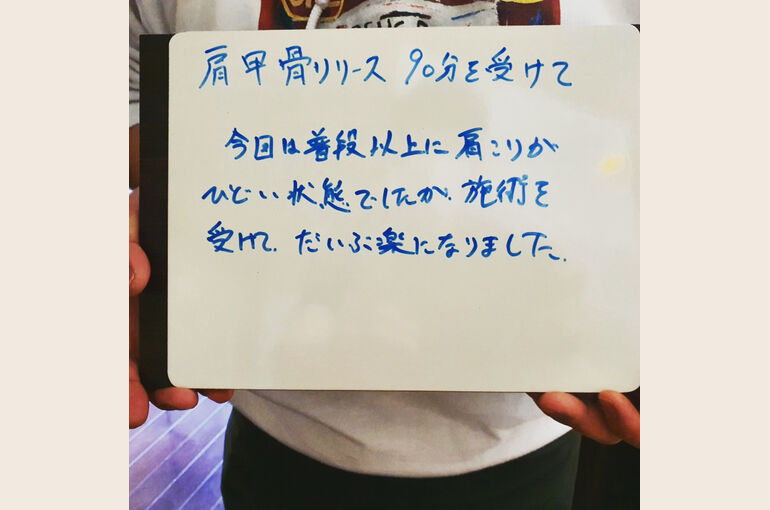 肩甲骨リリース 90分を受けて
今回は普段以上に肩こりが
ひどい状態でしたが、施術を
受けて、だいぶ楽になりました。